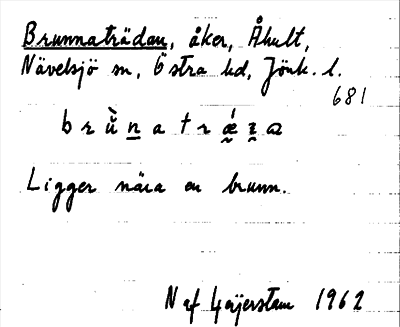 Brunnaträdan, åker, Åhult,
Nävelsjö sn, Östra hd, Jönk. l.
681
Ligger nära en brunn.
N af Geijerstam 1962